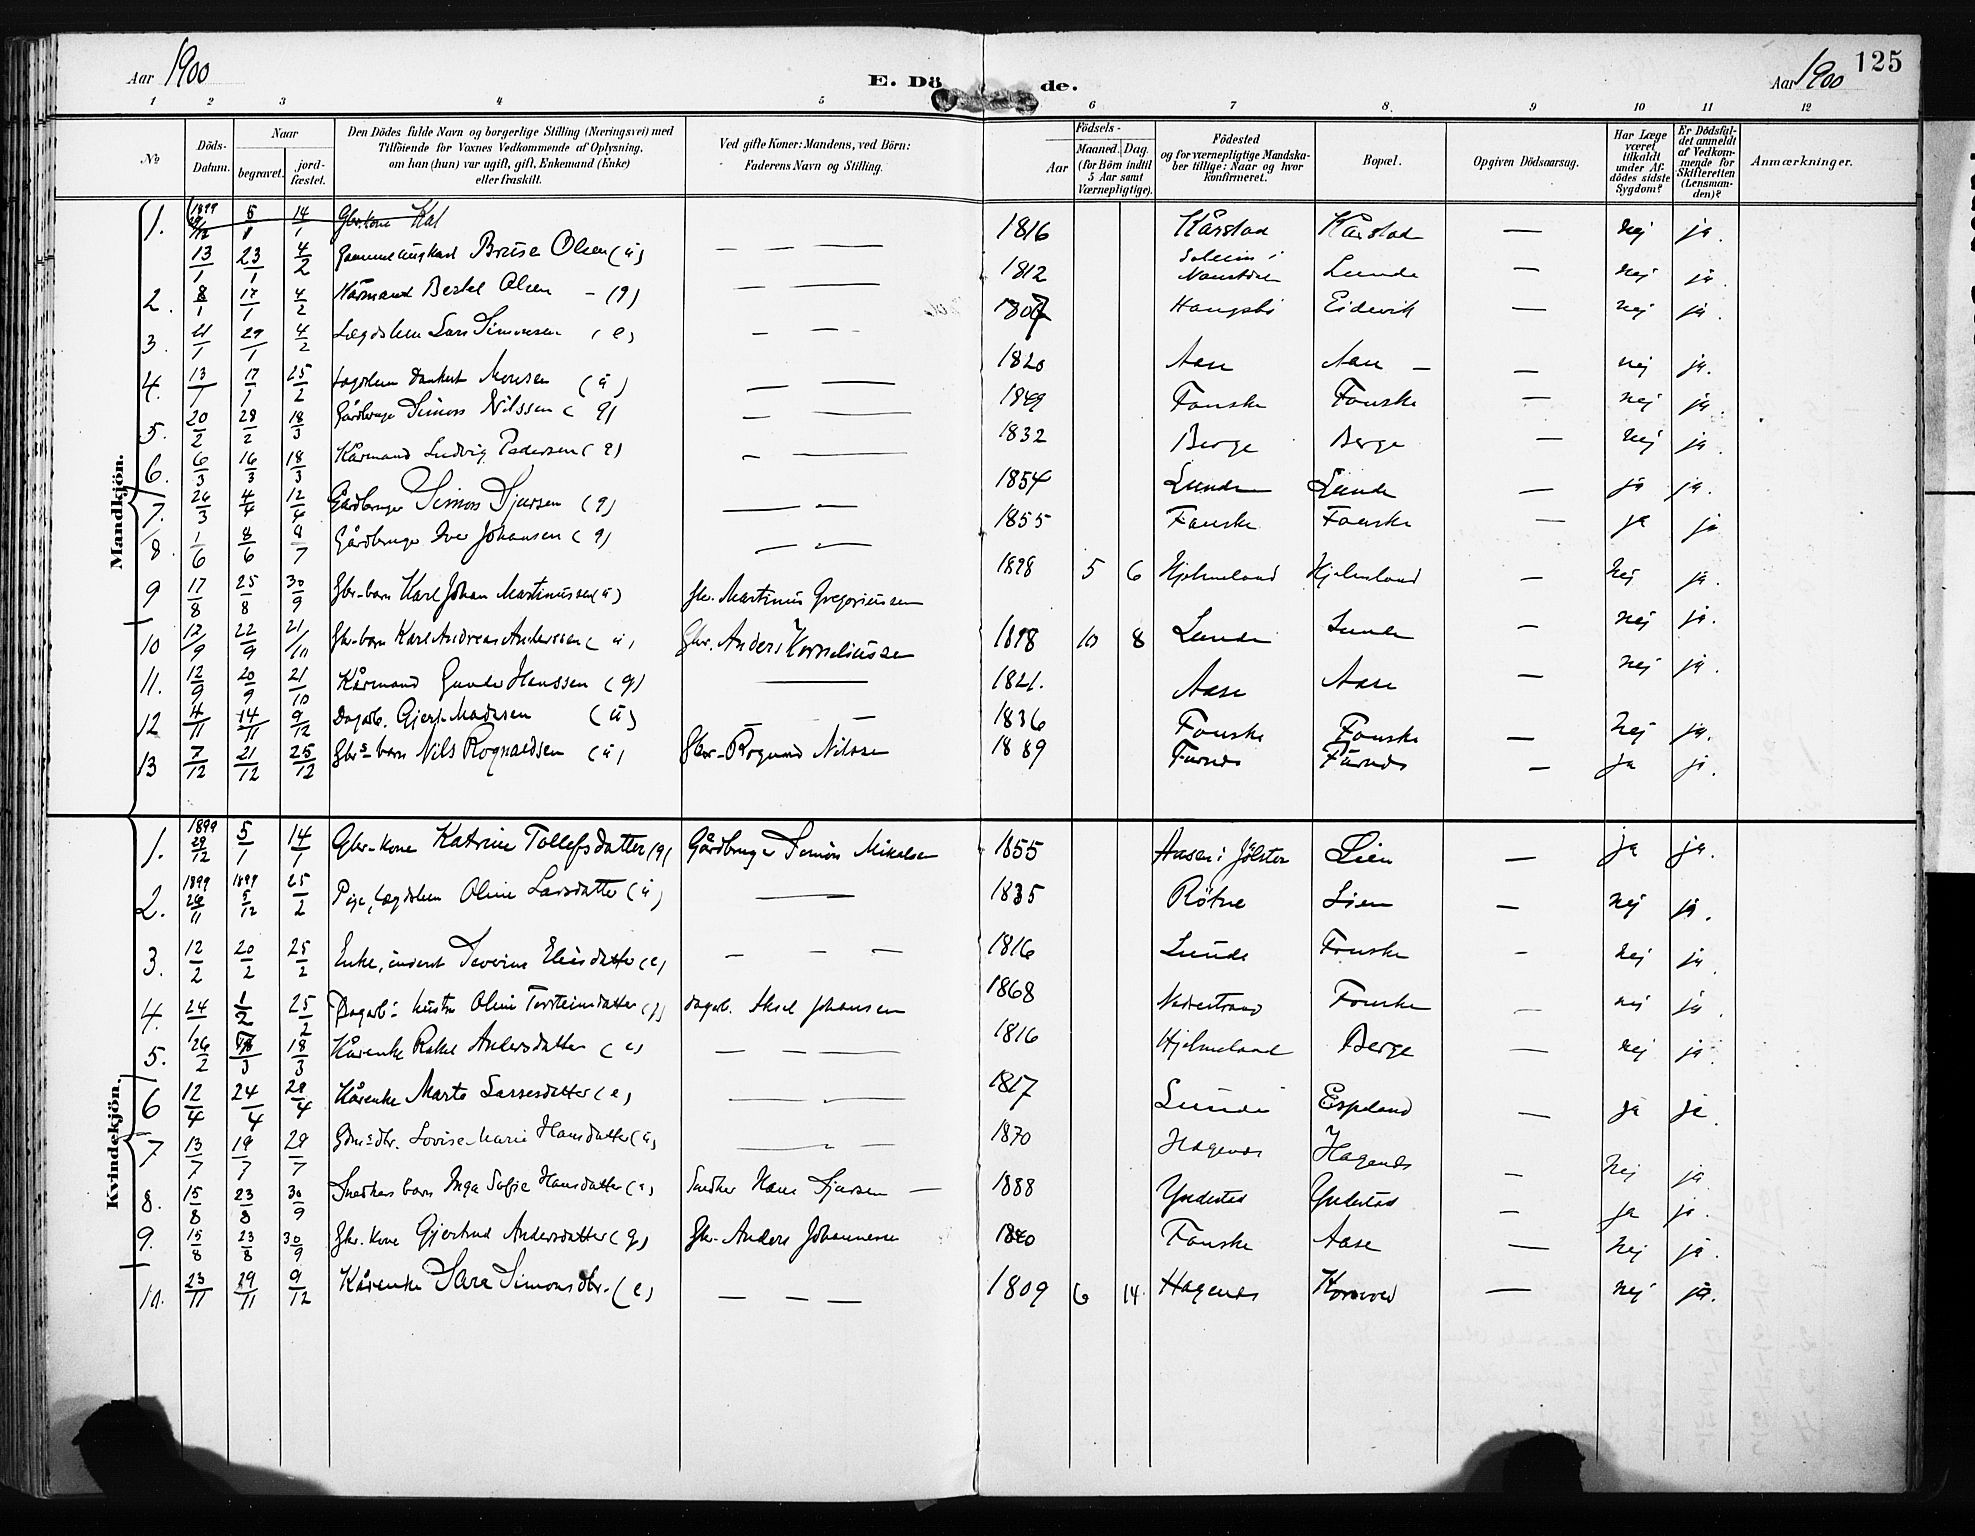 Aar 1900
E. Dö de.
Aar 1900 125
1 2 3 4 5 6 7 8. 9 10 11 12
No
Döds-Datum.
Naar
begravet.
jord-fæstet.
Den Dödes fulde Navn og borgerlige Stilling (Næringsvei) med
Tilföiende for Voxnes Vedkommende af Oplysning,
om han (hun) var ugift, gift, Enkemand (Enke)
eller fraskilt.
Ved gifte Koner: Mandens, ved Börn:
Faderens Navn og Stilling.
Födsels-
Aar
Maaned. Dag.
(for Börn indtil
5 Aar samt
Værnepligtige).
Födested
og for værnepligtige Mandska-
ber tillige: Naar og hvor
konfirmeret.
Bopæl.
Opgiven Dödsaarsag.
Har Læge
været
tilkaldt
under Af-
dödes sidste
Sygdom?
Er Dödsfal-
det anmeldt
af Vedkom-
mende for
Skifteretten
(Lensman-
den)?
Anmærkninger.
Mandkjön.
1899 29/12 5/1 14/1 Gbr.kone Kat
1. 13/1 23/1 4/2 Olsen (u) — — — 1816 Kårstad Kårstad — nej ja.
1812 Lunde — nej ja.
2. 8/1 17/1 4/2 Kårmand Bertel Olsen - (g) — — 1807 Eidevik — nej ja.
3. 21/1 29/1 4/2 Lægdslem Lars Simonsen (e) — — — 1820 Aase Aase — — nej ja.
4. 13/1 17/1 25/2 Lægdslem Dankert Monsen (u) — — 1849 Fonske Fonske — nej ja.
5. 20/2 28/2 18/3 Gårdbruger Simon Nilssen (g) — — 1832 Berge Berge — nej ja.
6. 6/3 16/3 18/3 Kårmand Ludvig Pedersen (g) — — 1854 Lunde Lunde — ja ja.
7. 26/3 4/4 12/4 Gårdbruger Simon Sjursen (g) — — 1855 Fonske Fonske — ja ja
8. 1/6 8/6 8/7 Gårdbruger Iver Johansen (g) — —
9 17/8 25/8 30/9 Gbr-barn Karl Johan Martinussen (u) Gbr. Martinus Gregoriussen 1898 5 6 Hjelmeland Hjelmeland — Nej ja.
10 12/9 22/9 21/10 Gbr-barn Karl Andreas Anderssen (u) Gbr. Anders Korneliussen 1898 10 8 Lunde Lunde — nej ja.
11. 12/9 20/9 21/10 Kårmand Gunder Hanssen (g) — 1821. Aase Aase — nej ja.
12 4/11 14/11 9/12 Dagarb. Madssen (u) — — 1836 Fonske Fonske — Nej ja.
13 7/12 21/12 25/12 Gbrs barn Nils Rognaldsen (u) Gbr- Nilssen 1889 Furnes Furnes — ja ja.
Kvindekjön.
1. 1899 29/12 5/1 14/1 Gbr-kone Katrine Tollefsdatter (g) Gårdbruger Simon Mikalsen 1855 Aasen i Jölster Lien — ja ja.
2. 1899 26/11 1899 5/12 25/2 Pige, Lægdslem Oline Larsdatter (u) — — 1835 Røtne Lien — nej ja.
3. 12/2 20/2 25/2 Enke, inderst Severine Eliasdatter (e) — — — 1816 Lunde Fonske — nej ja.
4. 24/1 1/2 25/2 Dagarb.- hustru Oline Torsteinsdatter (g) dagarb. Aksel Johansen 1868 Nedrestrand Fonske — nej ja.
5. 26/2 18/3 Kårenke Rakel Andersdatter (e) — — — 1816 Hjelmeland Berge — nej ja.
6 12/4 24/4 28/4 Kårenke Marta Lassesdatter (e) — — 1817 Lunde Espeland — ja ja.
7 13/7 19/7 29/7 Lovise Marie Hansdatter (u) — — 1870 Hagenæs Hagenæs — Nej ja.
8. 15/8 23/8 30/9 Snedkers barn Inga Sofie Hansdatter (u) Snedker Hans Sjursen — 1888 Yndestad Yndestad — ja ja.
9. 15/8 23/8 30/9 Gbr. kone Gjertrud Andersdatter (g) Gbr. Anders Johannessen 1840 Fonske Aase — Nej ja.
10. 23/11 29/11 9/12 Kårenke Sara Simonsdtr. (e) — — — 1809 6 14 Hagenæs — nej ja.